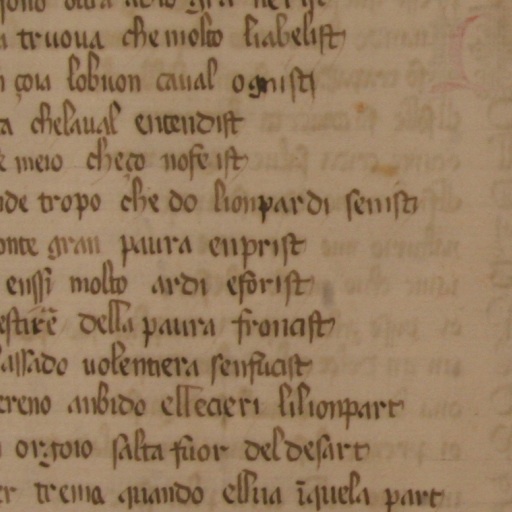 truoua che molto liabelist
çoia lobuon caual ognisti
a chelaual entendist
meio cheço nofeist
de tropo che do lionpardi senisti
onte gran paura enprist
enssi molto ardi eforist
della paura froncist
assado uolentiera senfucist
ereno anbido ellecieri lilionpart
orgoio salta fuor deldesart
er trema quando elsua īquela part